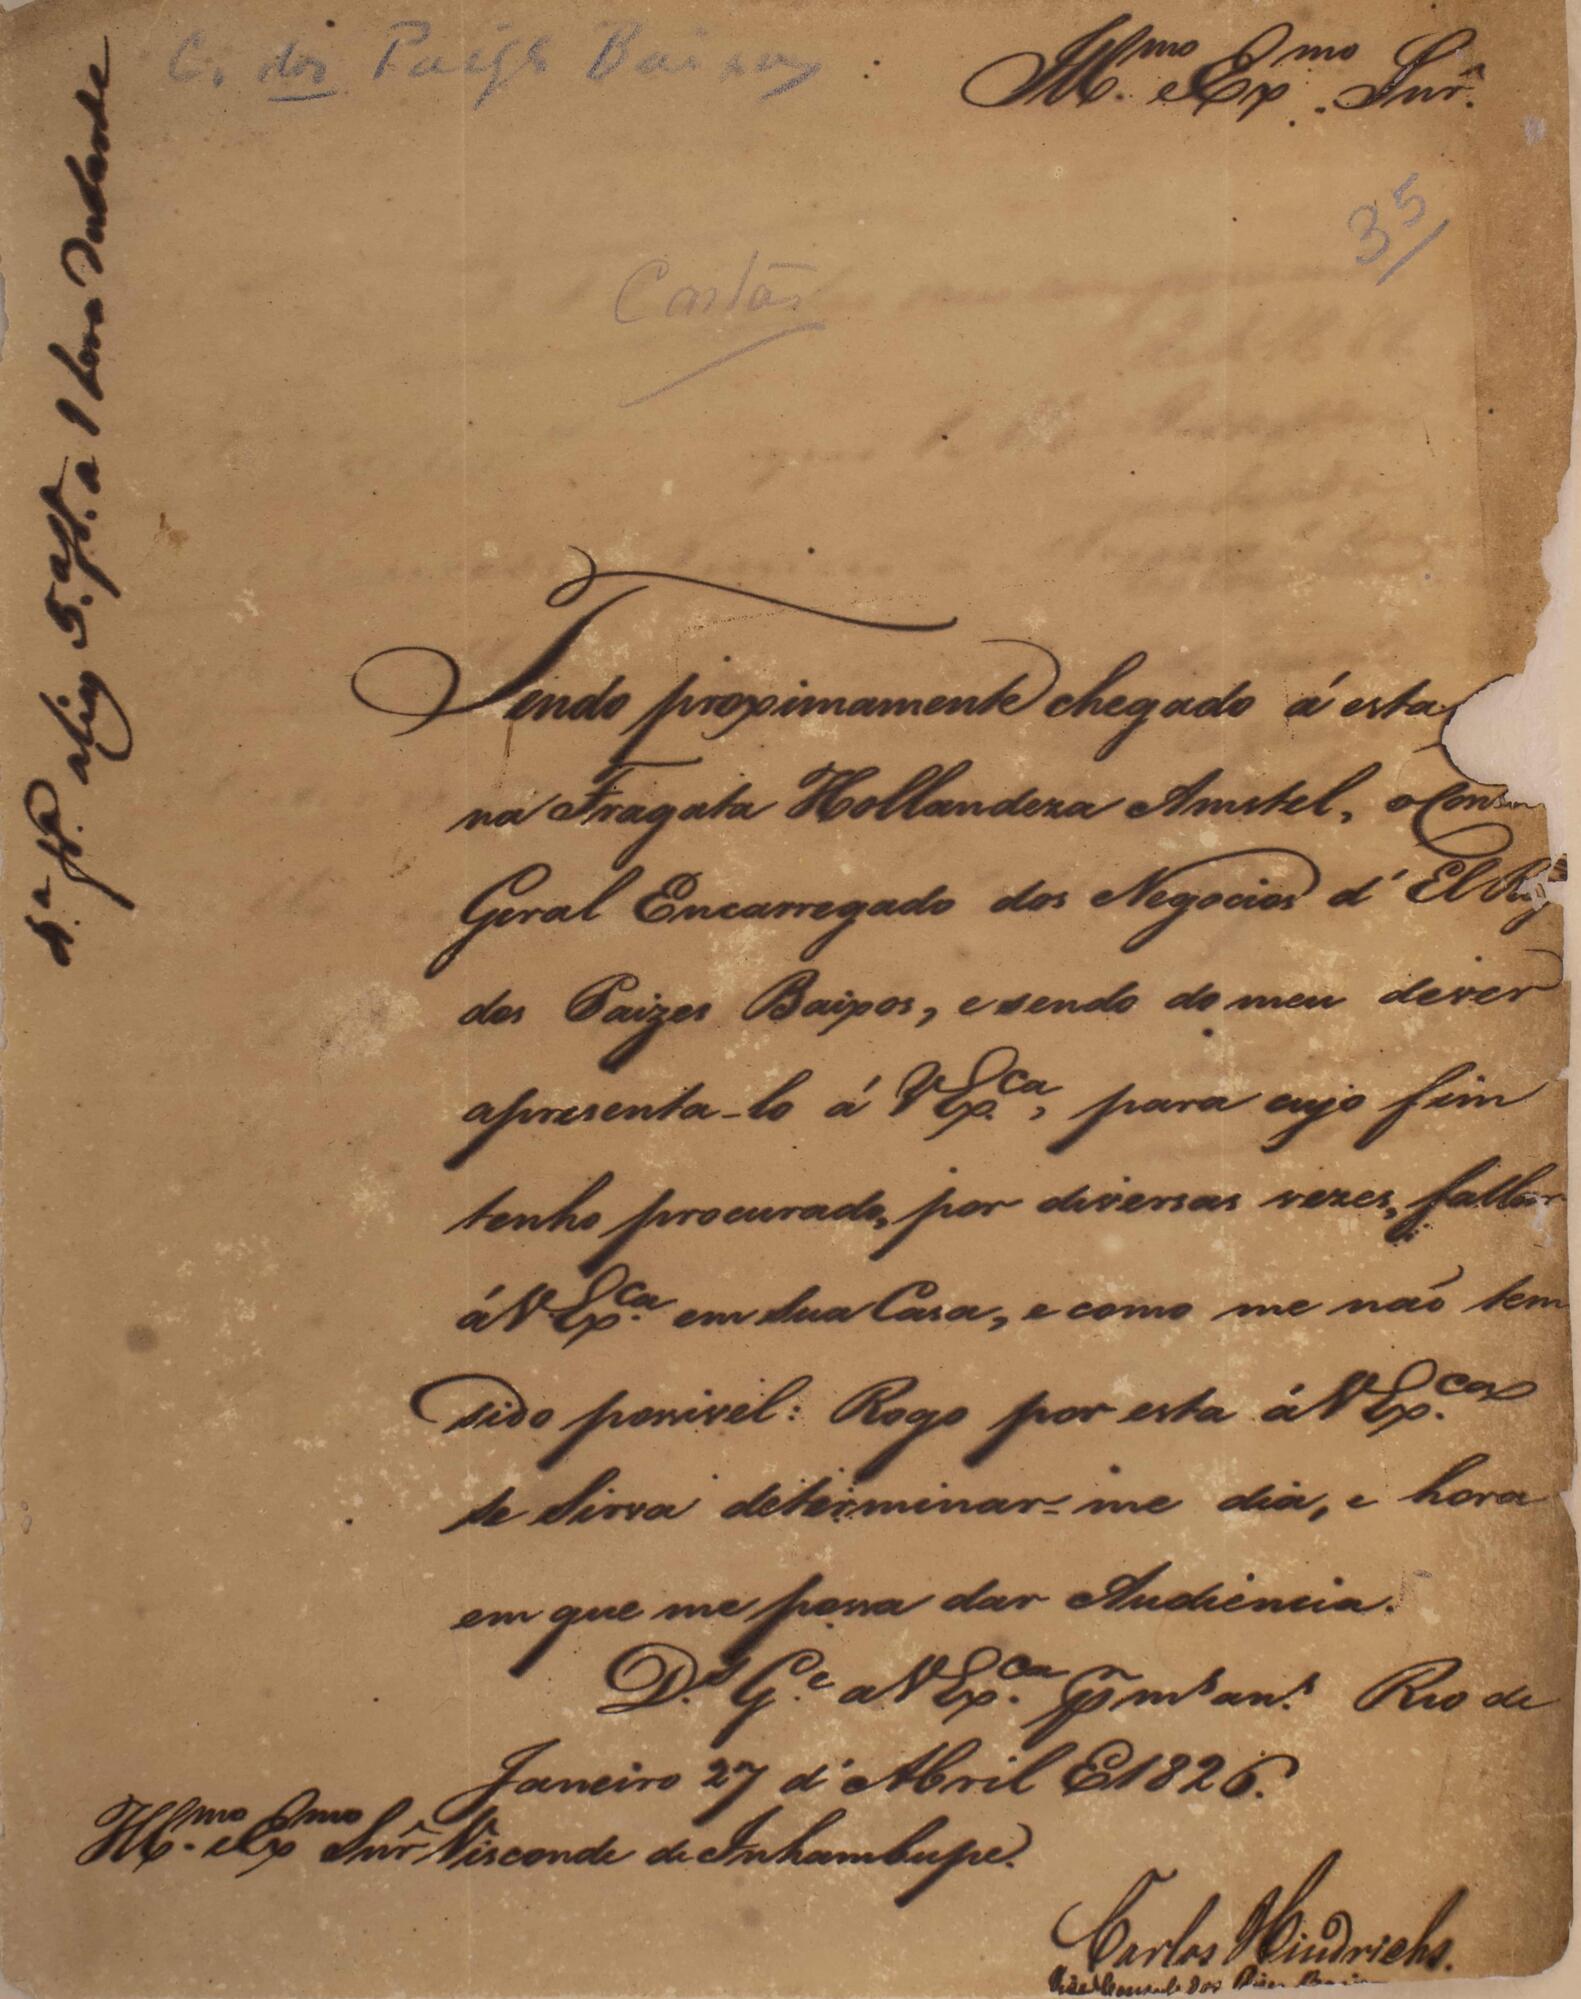 C. dos Paizes Baixos
Ill.mo e Ex.mo Snr.
35
Cartas
Tendo proximamente chegado á esta
na Fragata Hollandeza Amstel, o Consul
Geral Encarregado dos Negocios d' El Rey
dos Paizes Baixos, e sendo do meu dever
apresenta-lo á V Ex.ca, para cujo fim
tenho procurado, por diversas vezes, fallar
á V Ex.ca em sua Casa, e como me não tem
sido possivel: Rogo por esta á V Ex.ca
se sirva determinar-me dia, e hora
em que me possa dar Audiencia.
D.s G.e a V Ex.ca p.r m.s an.s Rio de
Janeiro 27 d' Abril E 1826.
Ill.mo e Ex.mo Snr Visconde de Inhambupe.
Carlos Hindrichs.
Vice Consul dos
5.a f.a a 1 hora da tarde